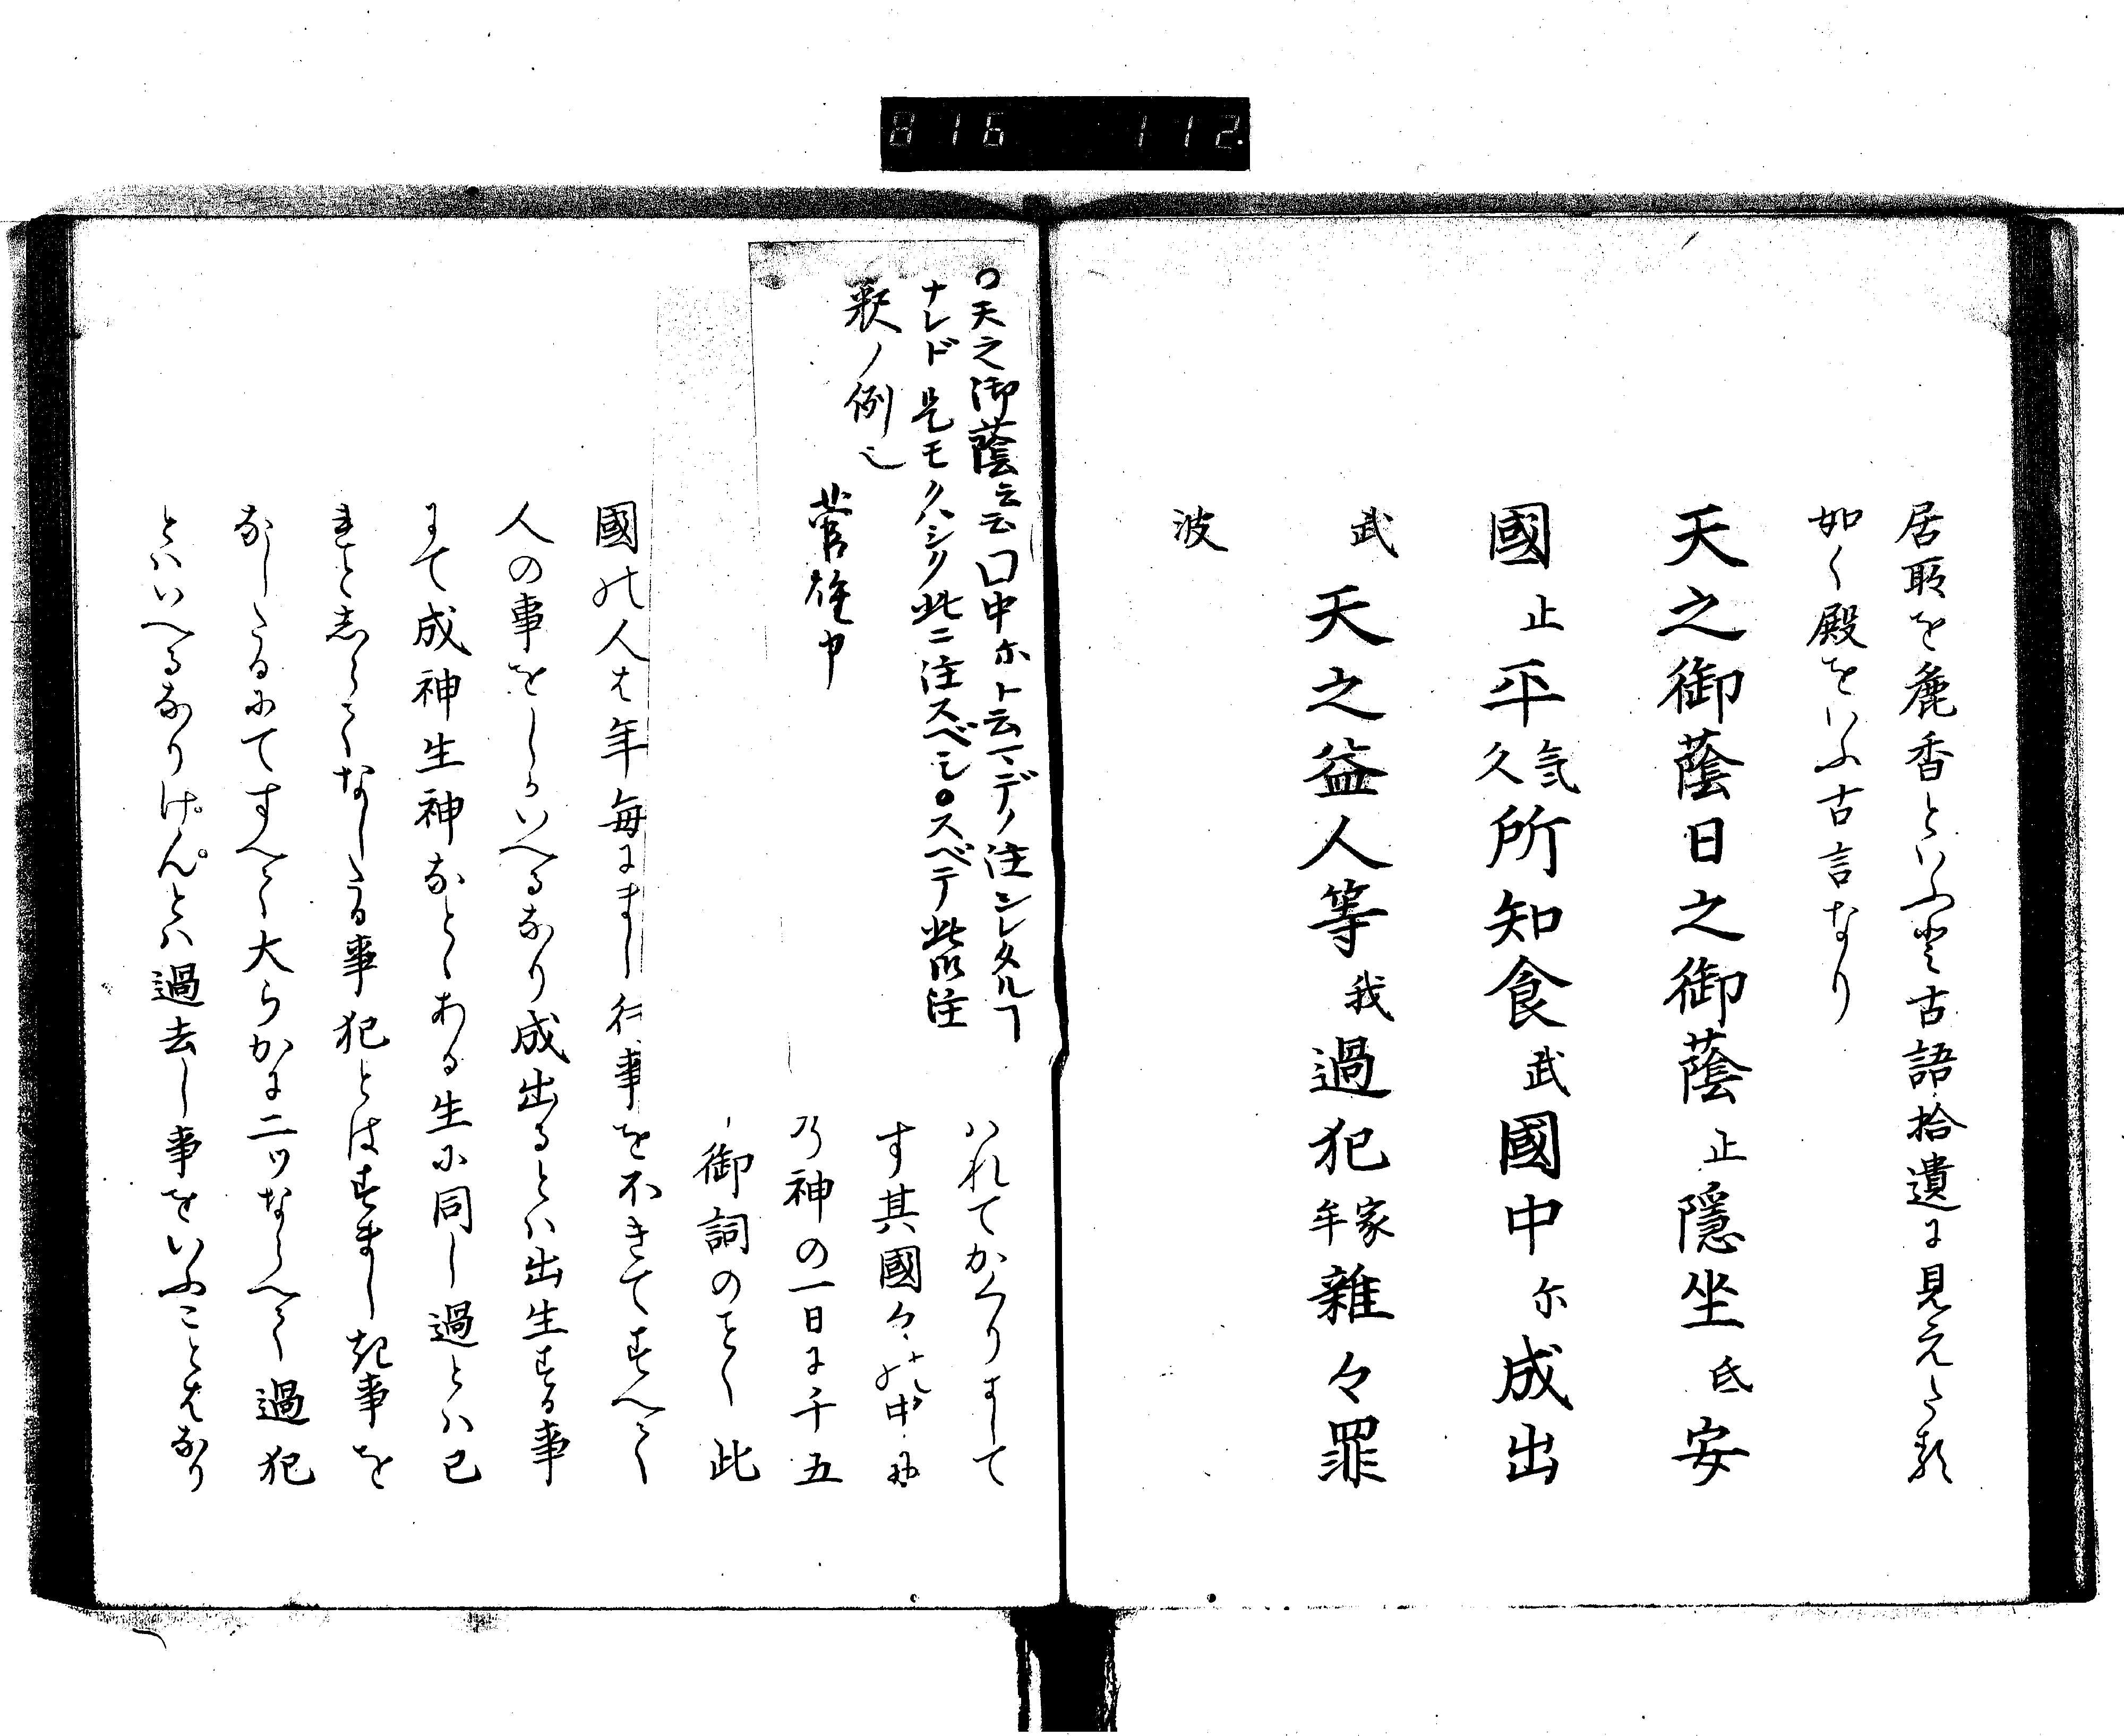 816 112
居所を麁香といふ事古語拾遺に見えたる
如く殿をいふ古言なり
天之御蔭日之御蔭止隠坐氐安
國止平気久所知食武國中尓成出
武天之益人等我過犯家牟雑々罪
波
○天之御蔭云云国中ホト云マデノ注シレタルヿ
ナレド是モクハシク此ニ注スベシ○スベテ此所注
釈ノ例也
菅雄申
いれてかくりまして
す其國々の中に
乃神の一日に千五
御詞のことく此
國の人は年毎にまし行事を不きてすへて
人の事をしかいへるなり成出るとは出生する事
にて成神生神なとゝある生に同し過とは已
まとしらてなしたる事犯とはすまし起事を
なしたるにてすへて大らかに二ツならへて過犯
とはいへるなりけんとは過去し事をいふことはなり